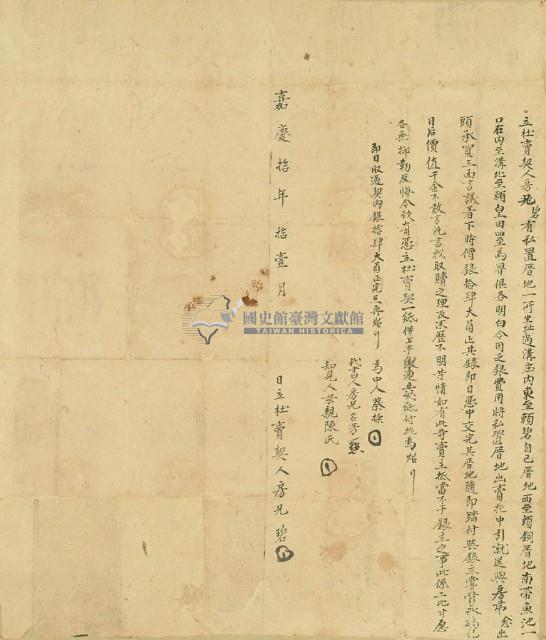 立杜賣契人房兄碧有私置厝地一所坐址過溝宅內東至賴碧自己厝地西至賴銅厝地南帶魚池一
口在內至溝北至賴皇田四至為界俱各明白今因乏銀費用將私置厝地出賣托中引就送與房弟 出
頭承買三面言議着下時價銀拾肆大員正其銀即日憑中交完其厝地隨即踏付與銀主掌管永為己
日后價值千金不敢言洗言找取贖之理及來歷不明等情如有此等賣主抵當不干銀主之事此係二比甘愿
各無抑勒反悔今欲有憑立杜賣契一紙併上手繳連共 紙付執為炤
即日收過契內銀拾肆大員正完足再炤
為中人蔡
代書人房兄名芳
知見人母親陳氏
嘉慶拾年拾壹月 日立杜賣契人房兄碧
國史館臺灣文獻館
TAIWAN HISTORICA